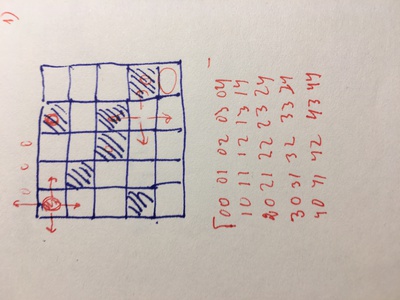 1)
0 0 0
[00 01 02 03 04
10 11 12 13 14
20 21 22 23 24
30 31 32 33 34
40 41 42 43 44